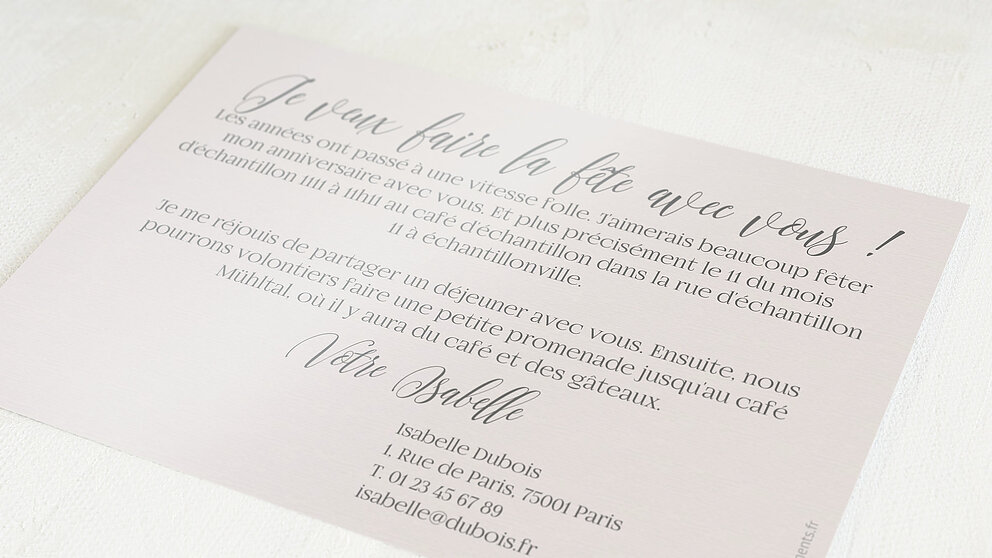 Je veux faire la fête avec vous !
Les années ont passé à une vitesse folle. J'aimerais beaucoup fêter
mon anniversaire avec vous. Et plus précisément le 11 du mois
d'échantillon 1111 à 11h11 au café d'échantillon dans la rue d'échantillon
11 à échantillonville.
Je me réjouis de partager un déjeuner avec vous. Ensuite, nous
pourrons volontiers faire une petite promenade jusqu'au café
Mühltal, où il y aura du café et des gâteaux.
Votre Isabelle
Isabelle Dubois
1, Rue de Paris, 75001 Paris
T. 01 23 45 67 89
isabelle@dubois.fr